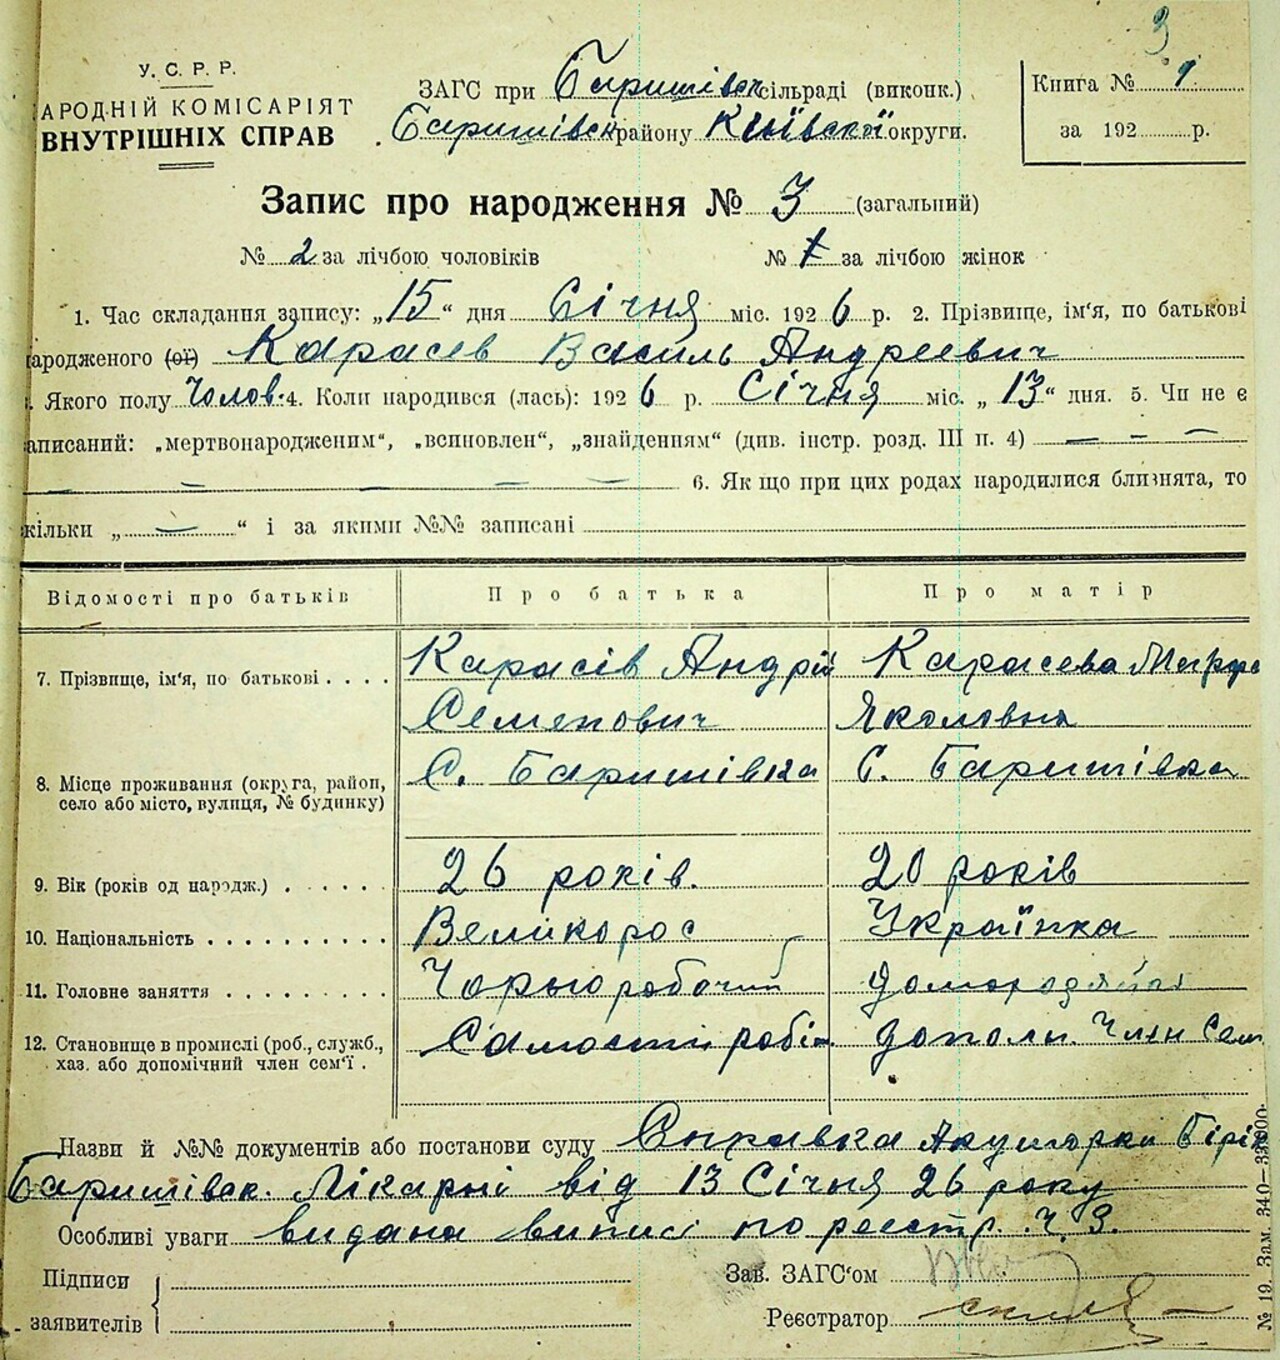 3
У. С. Р. Р.
АРОДНІЙ КОМІСАРІЯТ
ВНУТРІШНІХ СПРАВ
ЗАГС при Баришівськ сільраді (виконк.)
Баришівськ району Київської округи.
Книга № 1
за 192 р.
Запис про народження № 3 (загальний)
№ 2 за лічбою чоловіків № 1 за лічбою жінок
1. Час складання запису: „15“ дня Січня міс. 1926 р. 2. Прізвище, ім'я, по батькові
ародженого (ої) Карасев Василь Андреевич
. Якого полу Чолов. 4. Коли народився (лась): 1926 р. Січня міс. „13“ дня. 5. Чи не є
аписаний: „мертвонародженим“, „всиновлен“, „знайденням“ (див. інстр. розд. III п. 4) — — —
— — — — — 6. Якщо при цих родах народилися близнята, то
кільки „—“ і за якими №№ записані
Відомості про батьків Про батька Про матір
7. Прізвище, ім'я, по батькові . . . . Карасів Андрій Карасева Марфа
Семенович Яколовна
8. Місце проживання (округа, район, С. Баришівка С. Баришівка
село або місто, вулиця, № будинку)
9. Вік (років од народж.) . . . . . . 26 років. 20 років
10. Національність . . . . . . . . . . Великорос Українка
11. Головне заняття . . . . . . . . . Чорноробочий
12. Становище в промислі (роб., служб., Самості робі- дополн. Член Сем
хаз. або допомічний член сем'ї .
Назви й №№ документів або постанови суду Справка Акушорки
Баришівськ. Лікарні від 13 Січня 26 року
Особливі уваги видана випис по реестр. Ч. 3.
Підписи
заявителів
Зав. ЗАГС'ом
Реєстратор
№ 19. Зам. 340—33900.